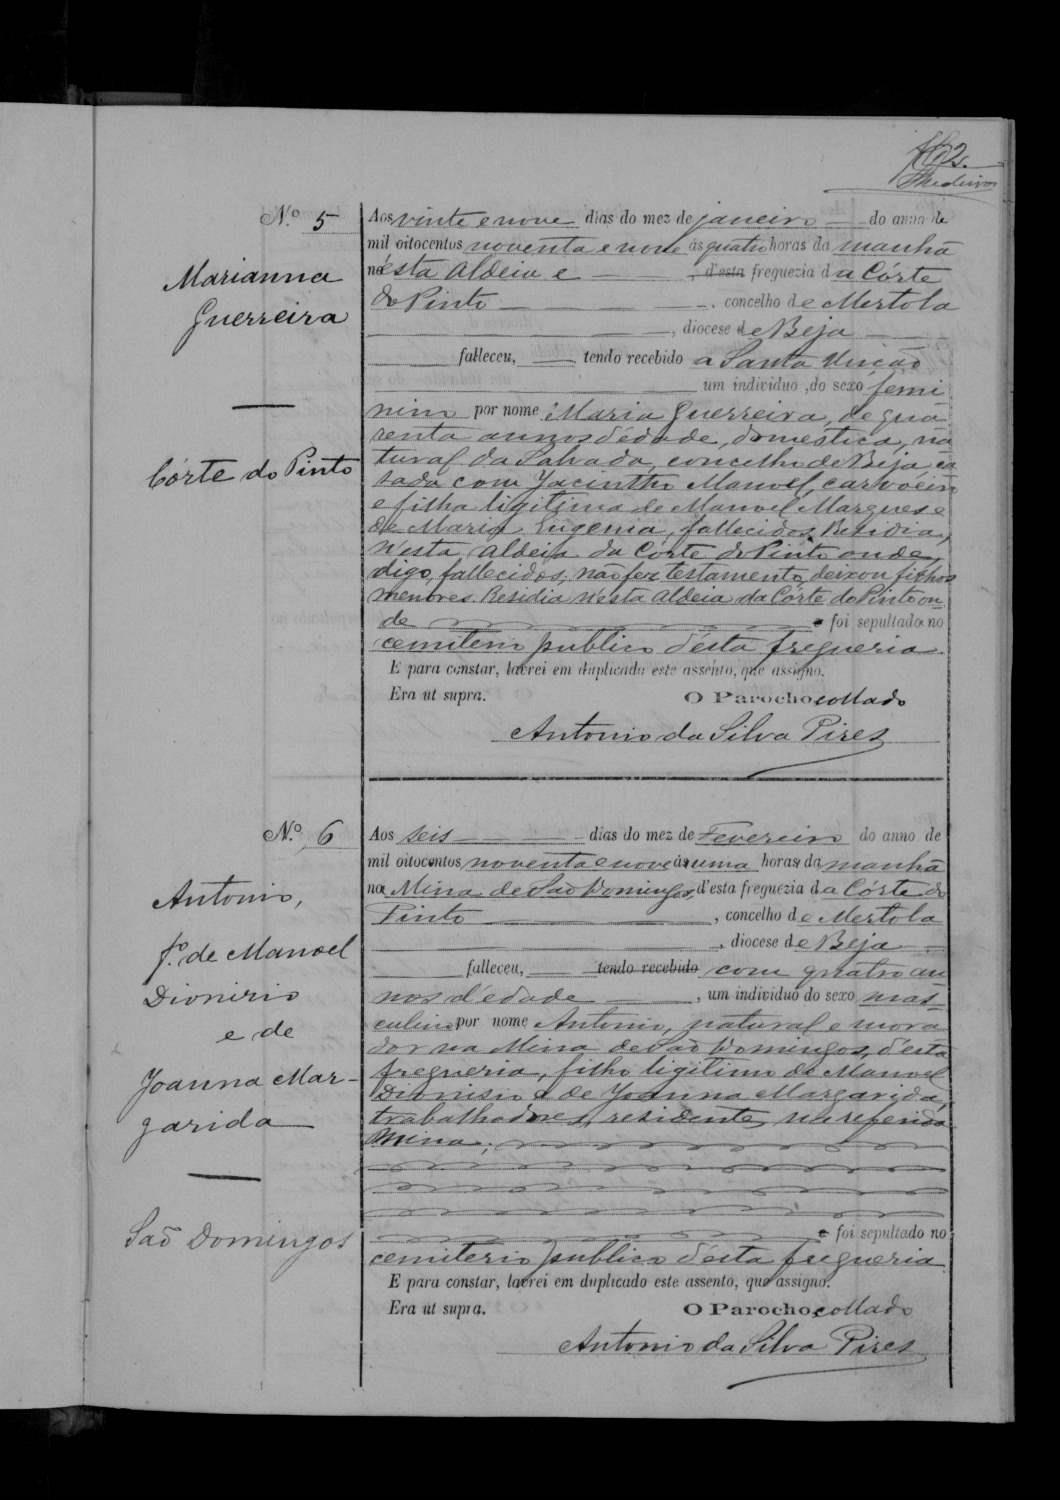 N.º 5
Marianna
Guerreira
Côrte do Pinto
Aos vinte e nove dias do mez de janeiro do anno de
mil oitocentos noventa e nove ás quatro horas da manhã
n'ésta Aldeia e d'esta freguezia da Côrte
do Pinto, concelho de Mertola
, diocese de Beja
falleceu, tendo recebido a Santa Uncão
um individuo, do sexo femi
nino por nome Maria Guerreira, de qua
renta annos d'édade, domestica, na
tural da Salvada, concelho de Beja, ca
sada com Jacintho Manoel, carvoeiro
e filha ligitima de Manoel Marques e
de Maria Eugenia, fallecidos. Residia,
n'esta Aldeia da Côrte do Pinto onde,
digo, fallecidos; não fez testamento, deixou filhos
menores. Residia n'ésta Aldeia da Côrte do Pinto on
de e foi sepultado no
cemiterio publico d'ésta freguezia.
E para constar, lavrei em duplicado este assento, que assigno.
Era ut supra. O Parocho collado
Antonio da Silva Pires
N.º 6
Antonio,
f.º de Manoel
Dionizio
e de
Joanna Mar-
garida
São Domingos
Aos seis dias do mez de Fevereiro do anno de
mil oitocentos noventa e nove á uma horas da manhã
na Mina de São Domingos, d'esta freguezia da Côrte do
Pinto, concelho de Mertola
, diocese de Beja
falleceu, tendo recebido com quatro an
nos d'édade, um individuo do sexo mas
culino por nome Antonio, natural e mora
dor na Mina de São Domingos, d'ésta
freguezia, filho ligitimo de Manoel
Dionisio e de Joanna Margarida,
trabalhadores, residentes na referida
Mina;
e foi sepultado no
cemiterio publico d'ésta freguezia.
E para constar, lavrei em duplicado este assento, que assigno.
Era ut supra. O Parocho, collado
Antonio da Silva Pires